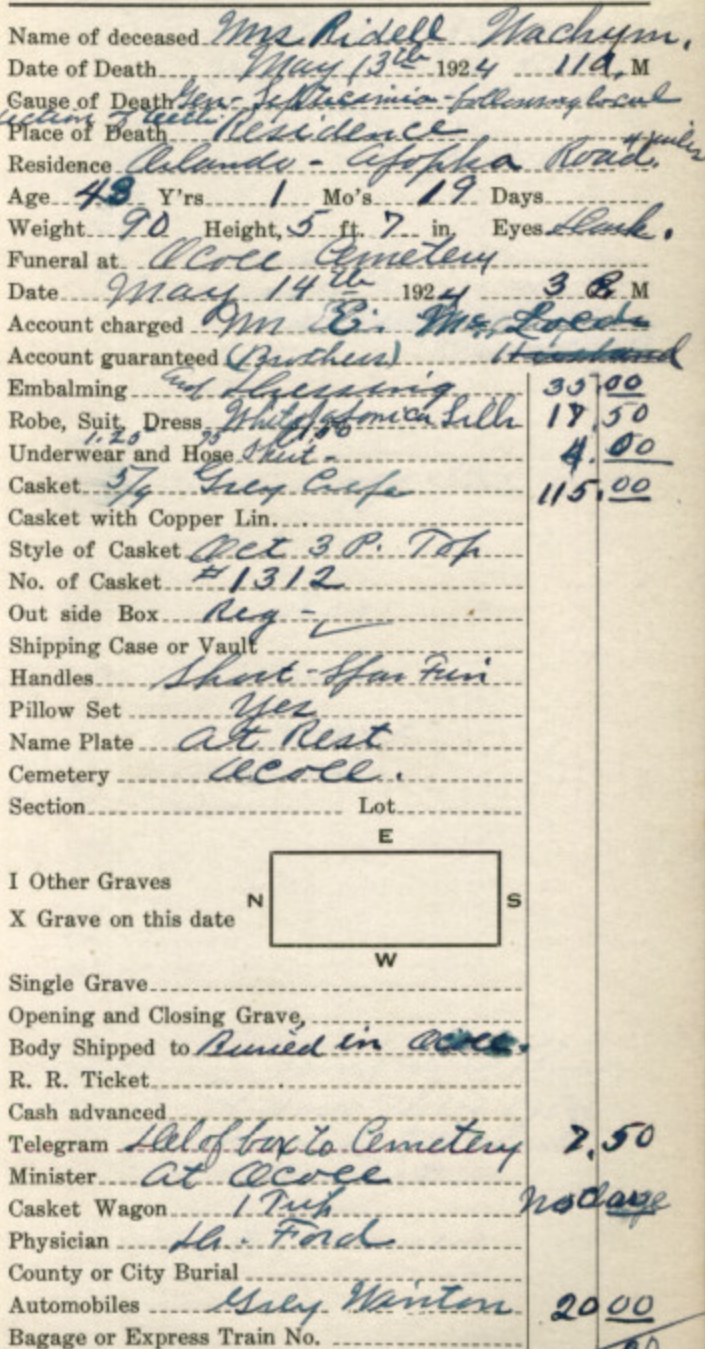 Name of deceased Mrs Ridell Wachym.
Date of Death May 13th 1924 11 a. M
Cause of Death Gen - Septicaemia - following local
Place of Death Residence
Residence Orlando - Apopka Road. 4 miles
Age 43 Y'rs 1 Mo's 19 Days
Weight 90 Height, 5 ft. 7 in. Eyes Dark.
Funeral at Ocoee Cemetery
Date May 14th 1924 3 P. M
Account charged Mr E.
Account guaranteed (Brothers) Husband
Embalming and Dressing 35.00
Robe, Suit, Dress White Silk 17.50
1.20 75
Underwear and Hose Skirt - 4.00
Casket 5/9 Grey Crepe 115.00
Casket with Copper Lin.
Style of Casket Oct 3 P. Top
No. of Casket #1312
Out side Box Reg -
Shipping Case or Vault
Handles Short -
Pillow Set Yes
Name Plate At Rest
Cemetery Ocoee.
Section Lot
E
I Other Graves
N S
X Grave on this date
W
Single Grave
Opening and Closing Grave,
Body Shipped to Buried in Ocoee.
R. R. Ticket
Cash advanced
Telegram Del of box to Cemetery 7.50
Minister At Ocoee
Casket Wagon 1 Trip
Physician Dr. Ford
County or City Burial
Automobiles Grey Winton 20 00
Bagage or Express Train No.